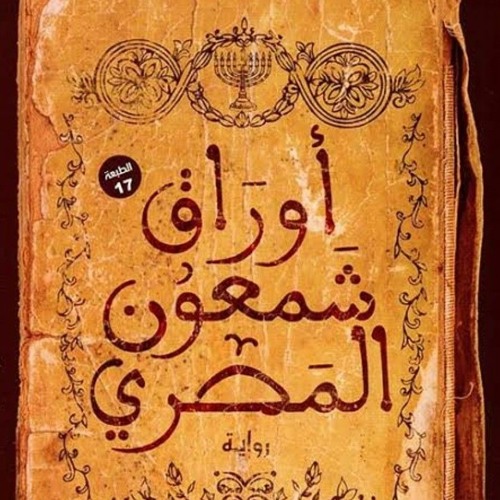 الطبعة
17
أوراق
شمعون
المصري
رواية